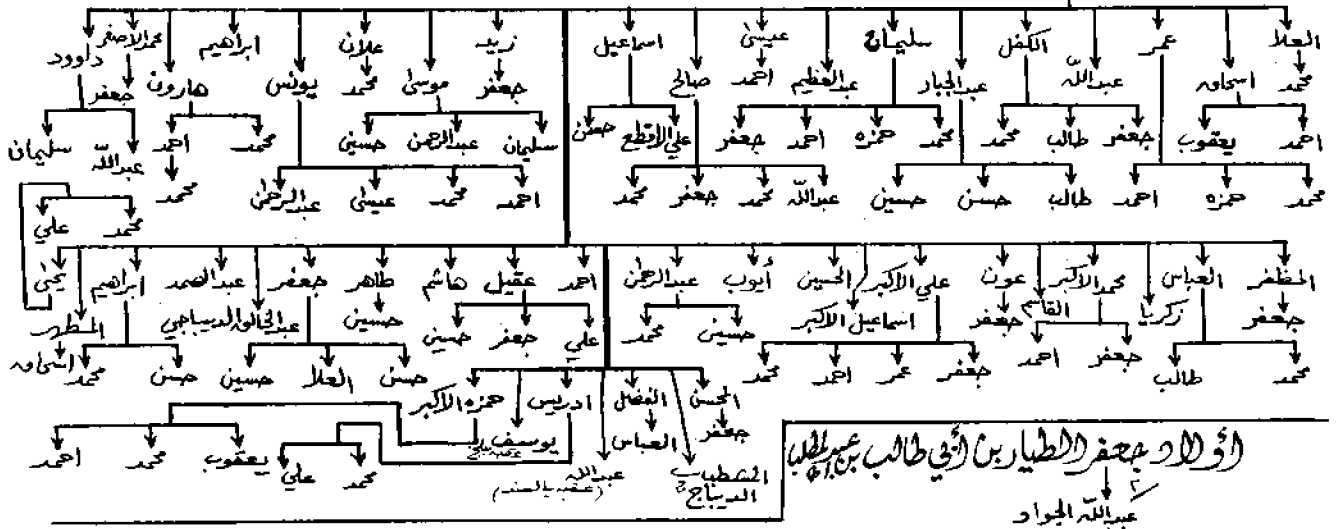 العلا عمر الكفل سليمان عيسى اسماعيل زيد علان ابراهيم محمد الاصغر داوود
محمد اسحاق عبد الله عبد الجبار عبد العظيم احمد صالح جعفر موسى محمد يونس هارون جعفر
احمد يعقوب جعفر طالب محمد محمد حمزه احمد جعفر علي الاقطع جعفر سليمان عبد الرحمن حسين محمد احمد عبد الله سليمان
محمد حمزه احمد طالب حسن حسين عبد الله محمد جعفر محمد احمد محمد عيسى عبد الرحمن محمد
محمد علي
المظفر العباس محمد الاكبر عون علي الاكبر الحسين أيوب عبد الرحمن احمد عقيل هاشم طاهر جعفر عبد الصمد ابراهيم يحيى
جعفر زكريا القاسم جعفر اسماعيل الاكبر حسين محمد علي جعفر حسين حسين عبد الخالق الديباجي المطهر
محمد طالب جعفر احمد جعفر عمر احمد محمد حسن العلا حسين حسن محمد اسحاق
المحسن الفضل ادريس حمزه الاكبر
جعفر العباس يوسف
الديباج عبد الله (عقبه بالسند)
محمد علي يعقوب محمد احمد
أولاد جعفر الطيار بن أبي طالب بن عبد المطلب
عبد الله الجواد